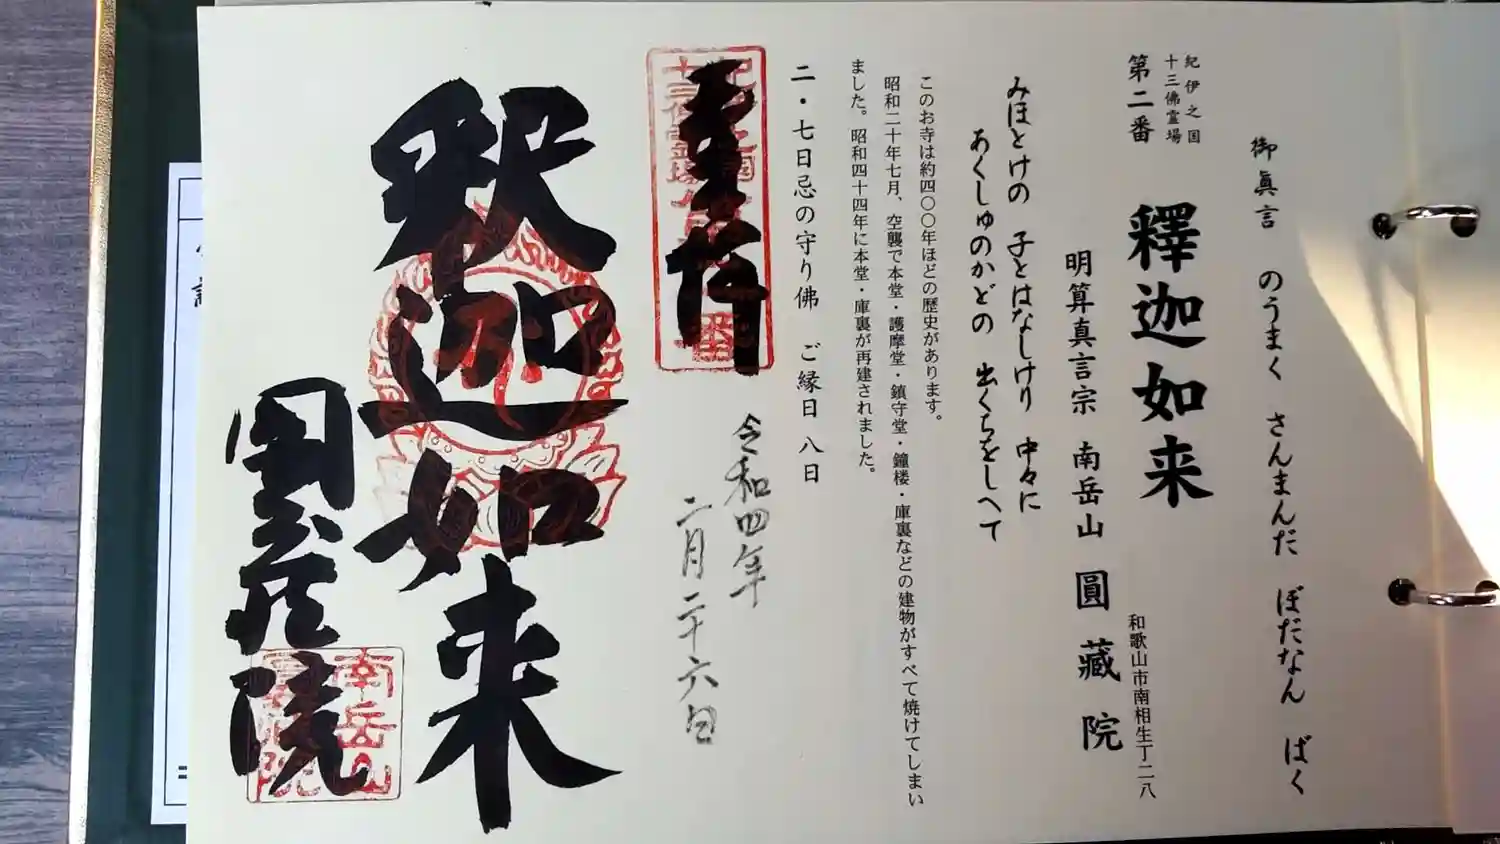 御眞言　のうまく　さんまんだ　ぼだなん　ばく
紀伊之国
十三佛霊場
第二番　釋迦如来
和歌山市南相生丁二八
明算真言宗　南岳山　圓藏院
みほとけの　子とはなしけり　中々に
あくしゅのかどの　出くちをしへて
このお寺は約四〇〇年ほどの歴史があります。
昭和二十年七月、空襲で本堂・護摩堂・鎮守堂・鐘楼・庫裏などの建物がすべて焼けてしまい
ました。昭和四十四年に本堂・庫裏が再建されました。
二・七日忌の守り佛　ご縁日　八日
令和四年
二月二十六日
釈迦如来
圓蔵院
南岳山